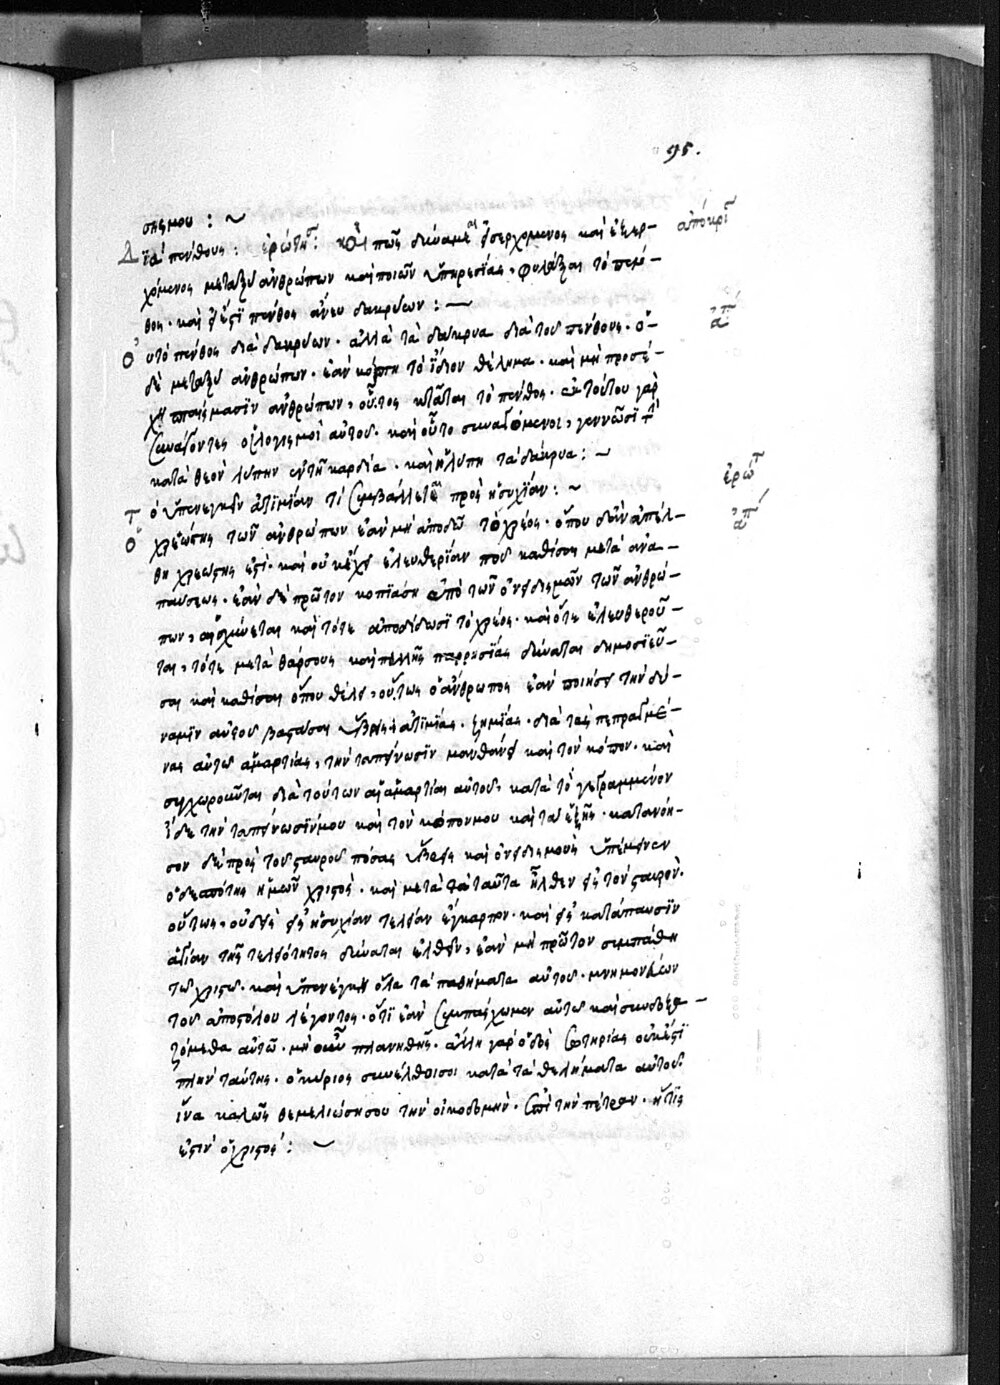 95.
σης μου : ~
Διὰ πένθους : ἐρώτησ : πῶς δύναμαι εἰσερχόμενος καὶ ἐξερ- ἀπόκρι
χόμενος μεταξὺ ἀνθρώπων καὶ ποιῶν ὑπηρεσίας, φυλάξαι τὸ πέν-
θος. καὶ εἰ ἔστι πένθος ἄνευ δακρύων : ~
Οὐ τὸ πένθος διὰ δακρύων. ἀλλὰ τὰ δάκρυα διὰ τοῦ πένθους. ὁ ἀπό
δὲ μεταξὺ ἀνθρώπων. ἐὰν κόψη τὸ ἴδιον θέλημα. καὶ μὴ προσέ-
χη πταίσμασιν ἀνθρώπων, οὗτος κτᾶται τὸ πένθος. ἐκ τούτου γὰρ
συνάγονται οἱ λογισμοὶ αὐτοῦ. καὶ οὕτο συναγόμενοι, γεννῶσι τὴν
κατὰ θεὸν λύπην ἐν τῆ καρδία. καὶ ἡ λύπη τὰ δάκρυα : ~
Τὸ ὑπενεγκεῖν ἀτιμίαν τί συμβάλλεται πρὸς ἡσυχίαν : ~ ἐρώτ
Ὁ χρεώστης τῶν ἀνθρώπων ἐὰν μὴ ἀποδῶ τὸ χρέος. ὅπου δ' ἂν ἀπέλ- ἀπό
θη χρεώστης ἐστί. καὶ οὐκ ἔχει ἐλευθερίαν ποῦ καθίσαι μετὰ ἀνα-
παύσεως. ἐὰν δὲ πρῶτον κοπιάση ἀπὸ τῶν ὀνειδισμῶν τῶν ἀνθρώ-
πων, αἰσχύνεται καὶ τότε ἀποδίδωσι τὸ χρέος. καὶ ὅτε ἐλευθεροῦ-
ται, τότε μετὰ θάρσους καὶ πολλῆς παρρησίας δύναται δημοσιεῦ-
σαι καὶ καθίσαι ὅπου θέλει, οὕτως ὁ ἄνθρωπος ἐὰν ποιήσει τὴν δύ-
ναμιν αὐτοῦ βαστάσαι ὕβρεις ἀτιμίας. ζημίας. διὰ τὰς πεπραγμέ-
νας αὐτῶ ἁμαρτίας, τὴν ταπείνωσιν μανθάνει καὶ τὸν κόπον. καὶ
συγχωροῦνται διὰ τούτων αἱ ἁμαρτίαι αὐτοῦ, κατὰ τὸ γεγραμμένον
ἴδε τὴν ταπείνωσίν μου καὶ τὸν κόπον μου καὶ τὰ ἑξῆς. κατανόη-
σον δὲ πρὸ τοῦ σταυροῦ πόσας ὕβρεις καὶ ὀνειδισμοὺς ὑπέμεινεν
ὁ δεσπότης ἡμῶν χριστός. καὶ μετὰ ταῦτα ἦλθεν εἰς τὸν σταυρόν.
οὕτως, οὐδεὶς εἰς ἡσυχίαν τελείαν ἔγκαρπον. καὶ εἰς κατάπαυσιν
ἁγίαν τῆς τελειότητος δύναται ἐλθεῖν, ἐὰν μὴ πρῶτον συμπάθη
τῶ χριστῶ. καὶ ὑπενέγκη ὅλα τὰ παθήματα αὐτοῦ. μνημονεύων
τοῦ ἀποστόλου λέγοντος. ὅτι ἐὰν συμπάσχωμεν αὐτῶ καὶ συνδοξα-
ζόμεθα αὐτῶ. μὴ οὖν πλανηθῆς. ἄλλη γὰρ ὁδὸς σωτηρίας οὐκ ἔστι
πλὴν ταύτης. ὁ κύριος συνέλθοι σοι κατὰ τὰ θελήματα αὐτοῦ.
ἵνα καλῶς θεμελιώσης σου τὴν οἰκοδομήν. ἐπὶ τὴν πέτραν. ἥτις
ἐστιν ὁ χριστός : ~